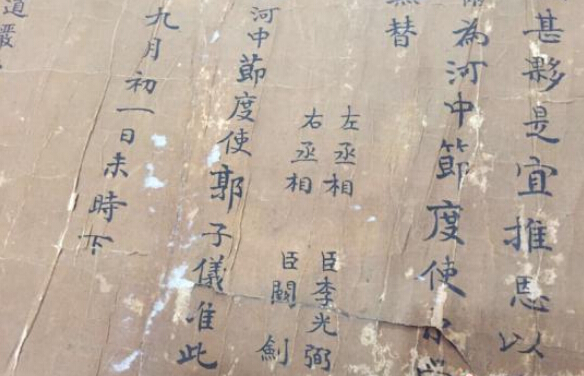 甚夥是宜推恩以
為河中節度使
替
左丞相 臣李光弼
右丞相 臣閥劍
河中節度使郭子儀准此
九月初一日未時下
道嚴